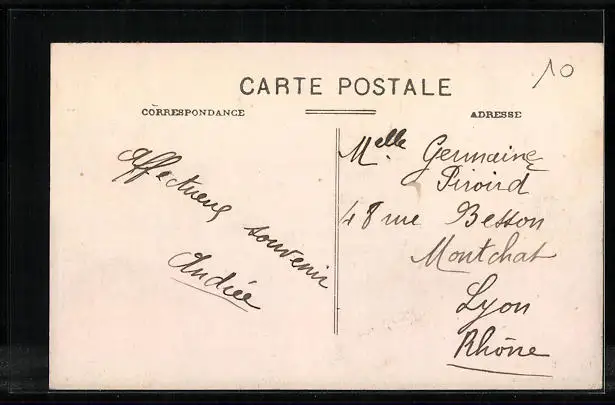 10
CARTE POSTALE
CORRESPONDANCE
ADRESSE
Affectueux souvenir
Andrée
Melle Germaine
Piroird
48 rue Besson
Montchat
Lyon
Rhône